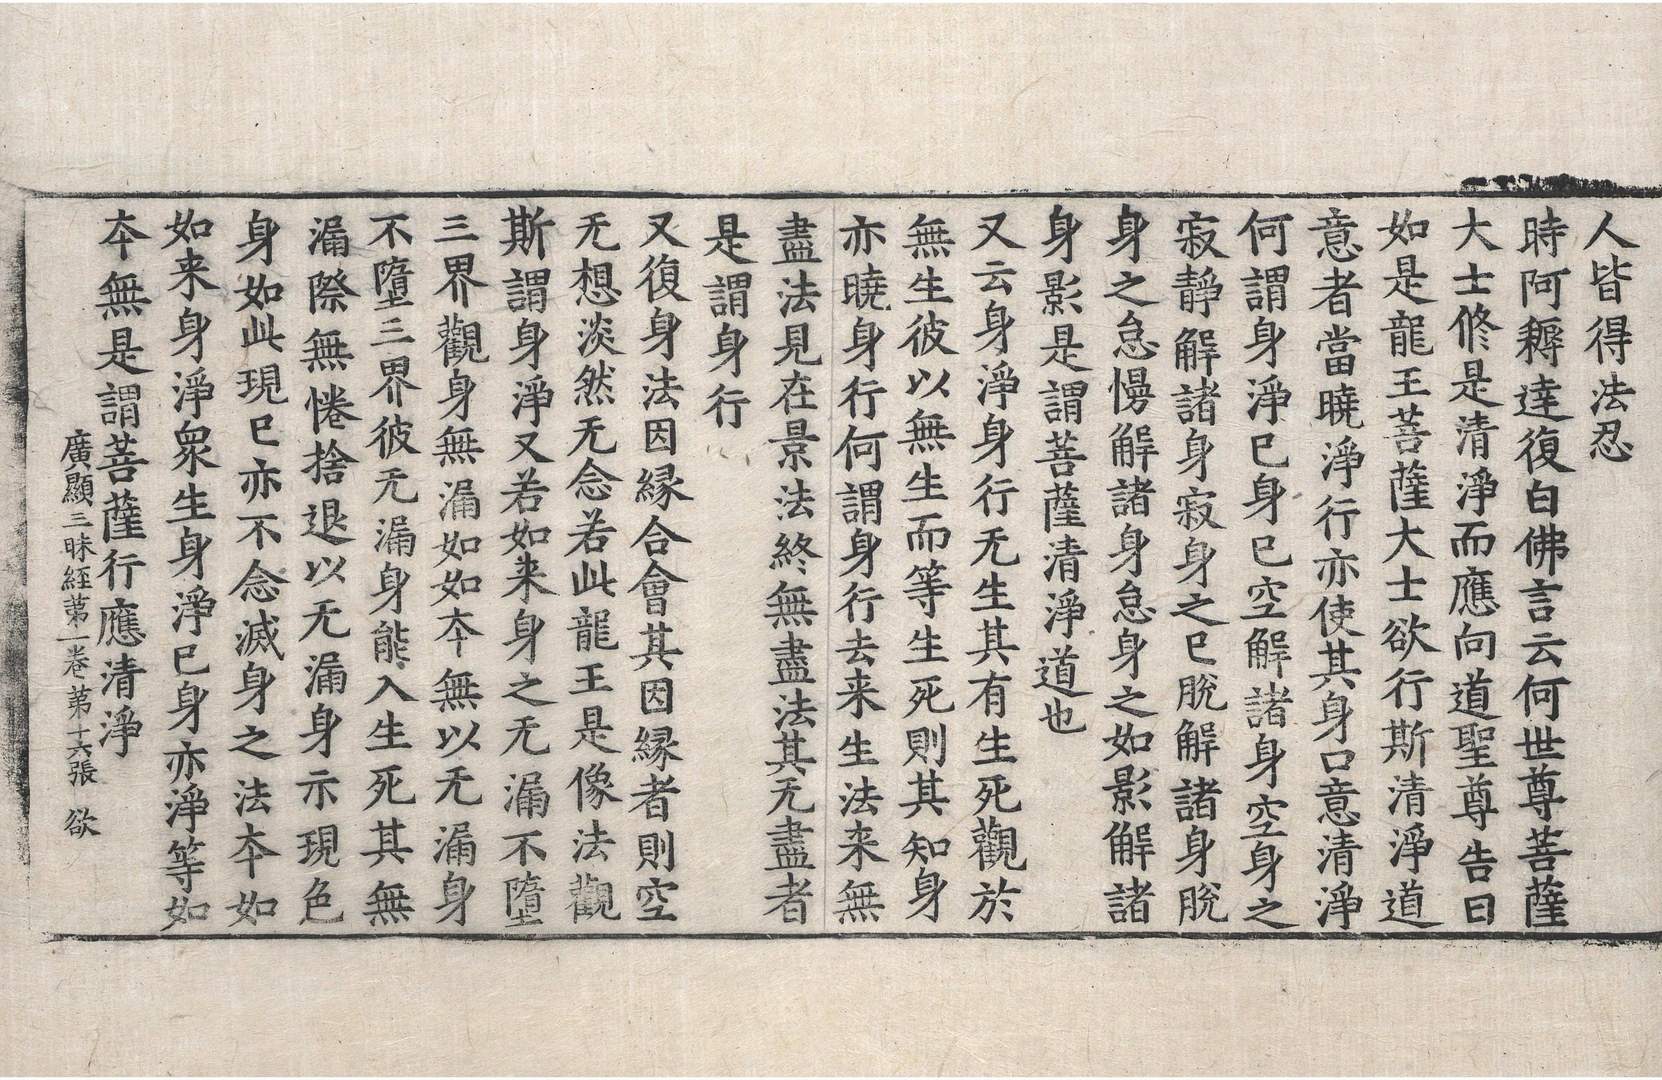 人皆得法忍
時阿耨達復白佛言云何世尊菩薩
大士修是清淨而應向道聖尊告曰
如是龍王菩薩大士欲行斯清淨道
意者當曉淨行亦使其身口意清淨
何謂身淨已身已空解諸身空身之
寂靜解諸身寂身之已脫解諸身脫
身之怠慢解諸身怠身之如影解諸
身影是謂菩薩清淨道也
又云身淨身行无生其有生死觀於
無生彼以無生而等生死則其知身
亦曉身行何謂身行去来生法来無
盡法見在景法終無盡法其无盡者
是謂身行
又復身法因縁合會其因縁者則空
无想淡然无念若此龍王是像法觀
斯謂身淨又若如来身之无漏不墮
三界觀身無漏如如夲無以无漏身
不墮三界彼无漏身能入生死其無
漏際無惓捨退以无漏身示現色
身如此現已亦不念滅身之法夲如
如来身淨衆生身淨已身亦淨等如
夲無是謂菩薩行應清淨
廣顯三昧經第一卷 第十六張 欲